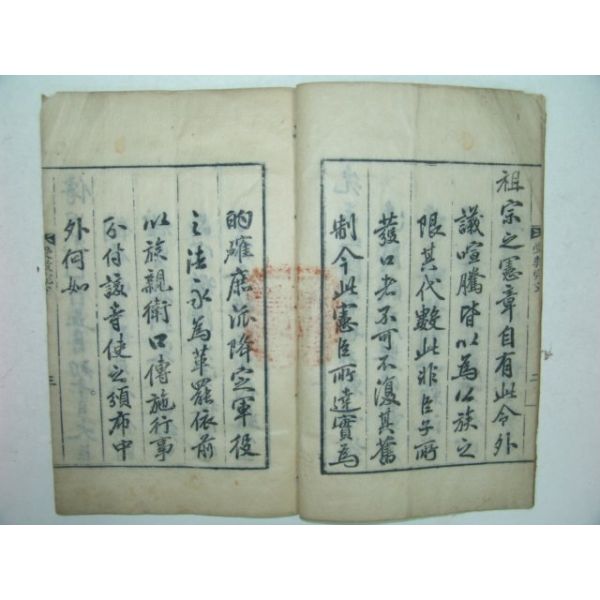 祖宗之憲章自有此令外
議喧騰皆以為公族之
限其代數此非臣子所
發口者不可不復其舊
制今此憲臣所達實為
的確庶派降定軍役
之法永為革罷依前
以族親衛口傳施行事
分付該寺使之頒布中
外何如
二
三